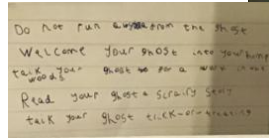 Do not run from the ghost
Welcome your ghost into your home
take your ghost for a walk in the
woods
Read your ghost a scary story
take your ghost trick-or-treating